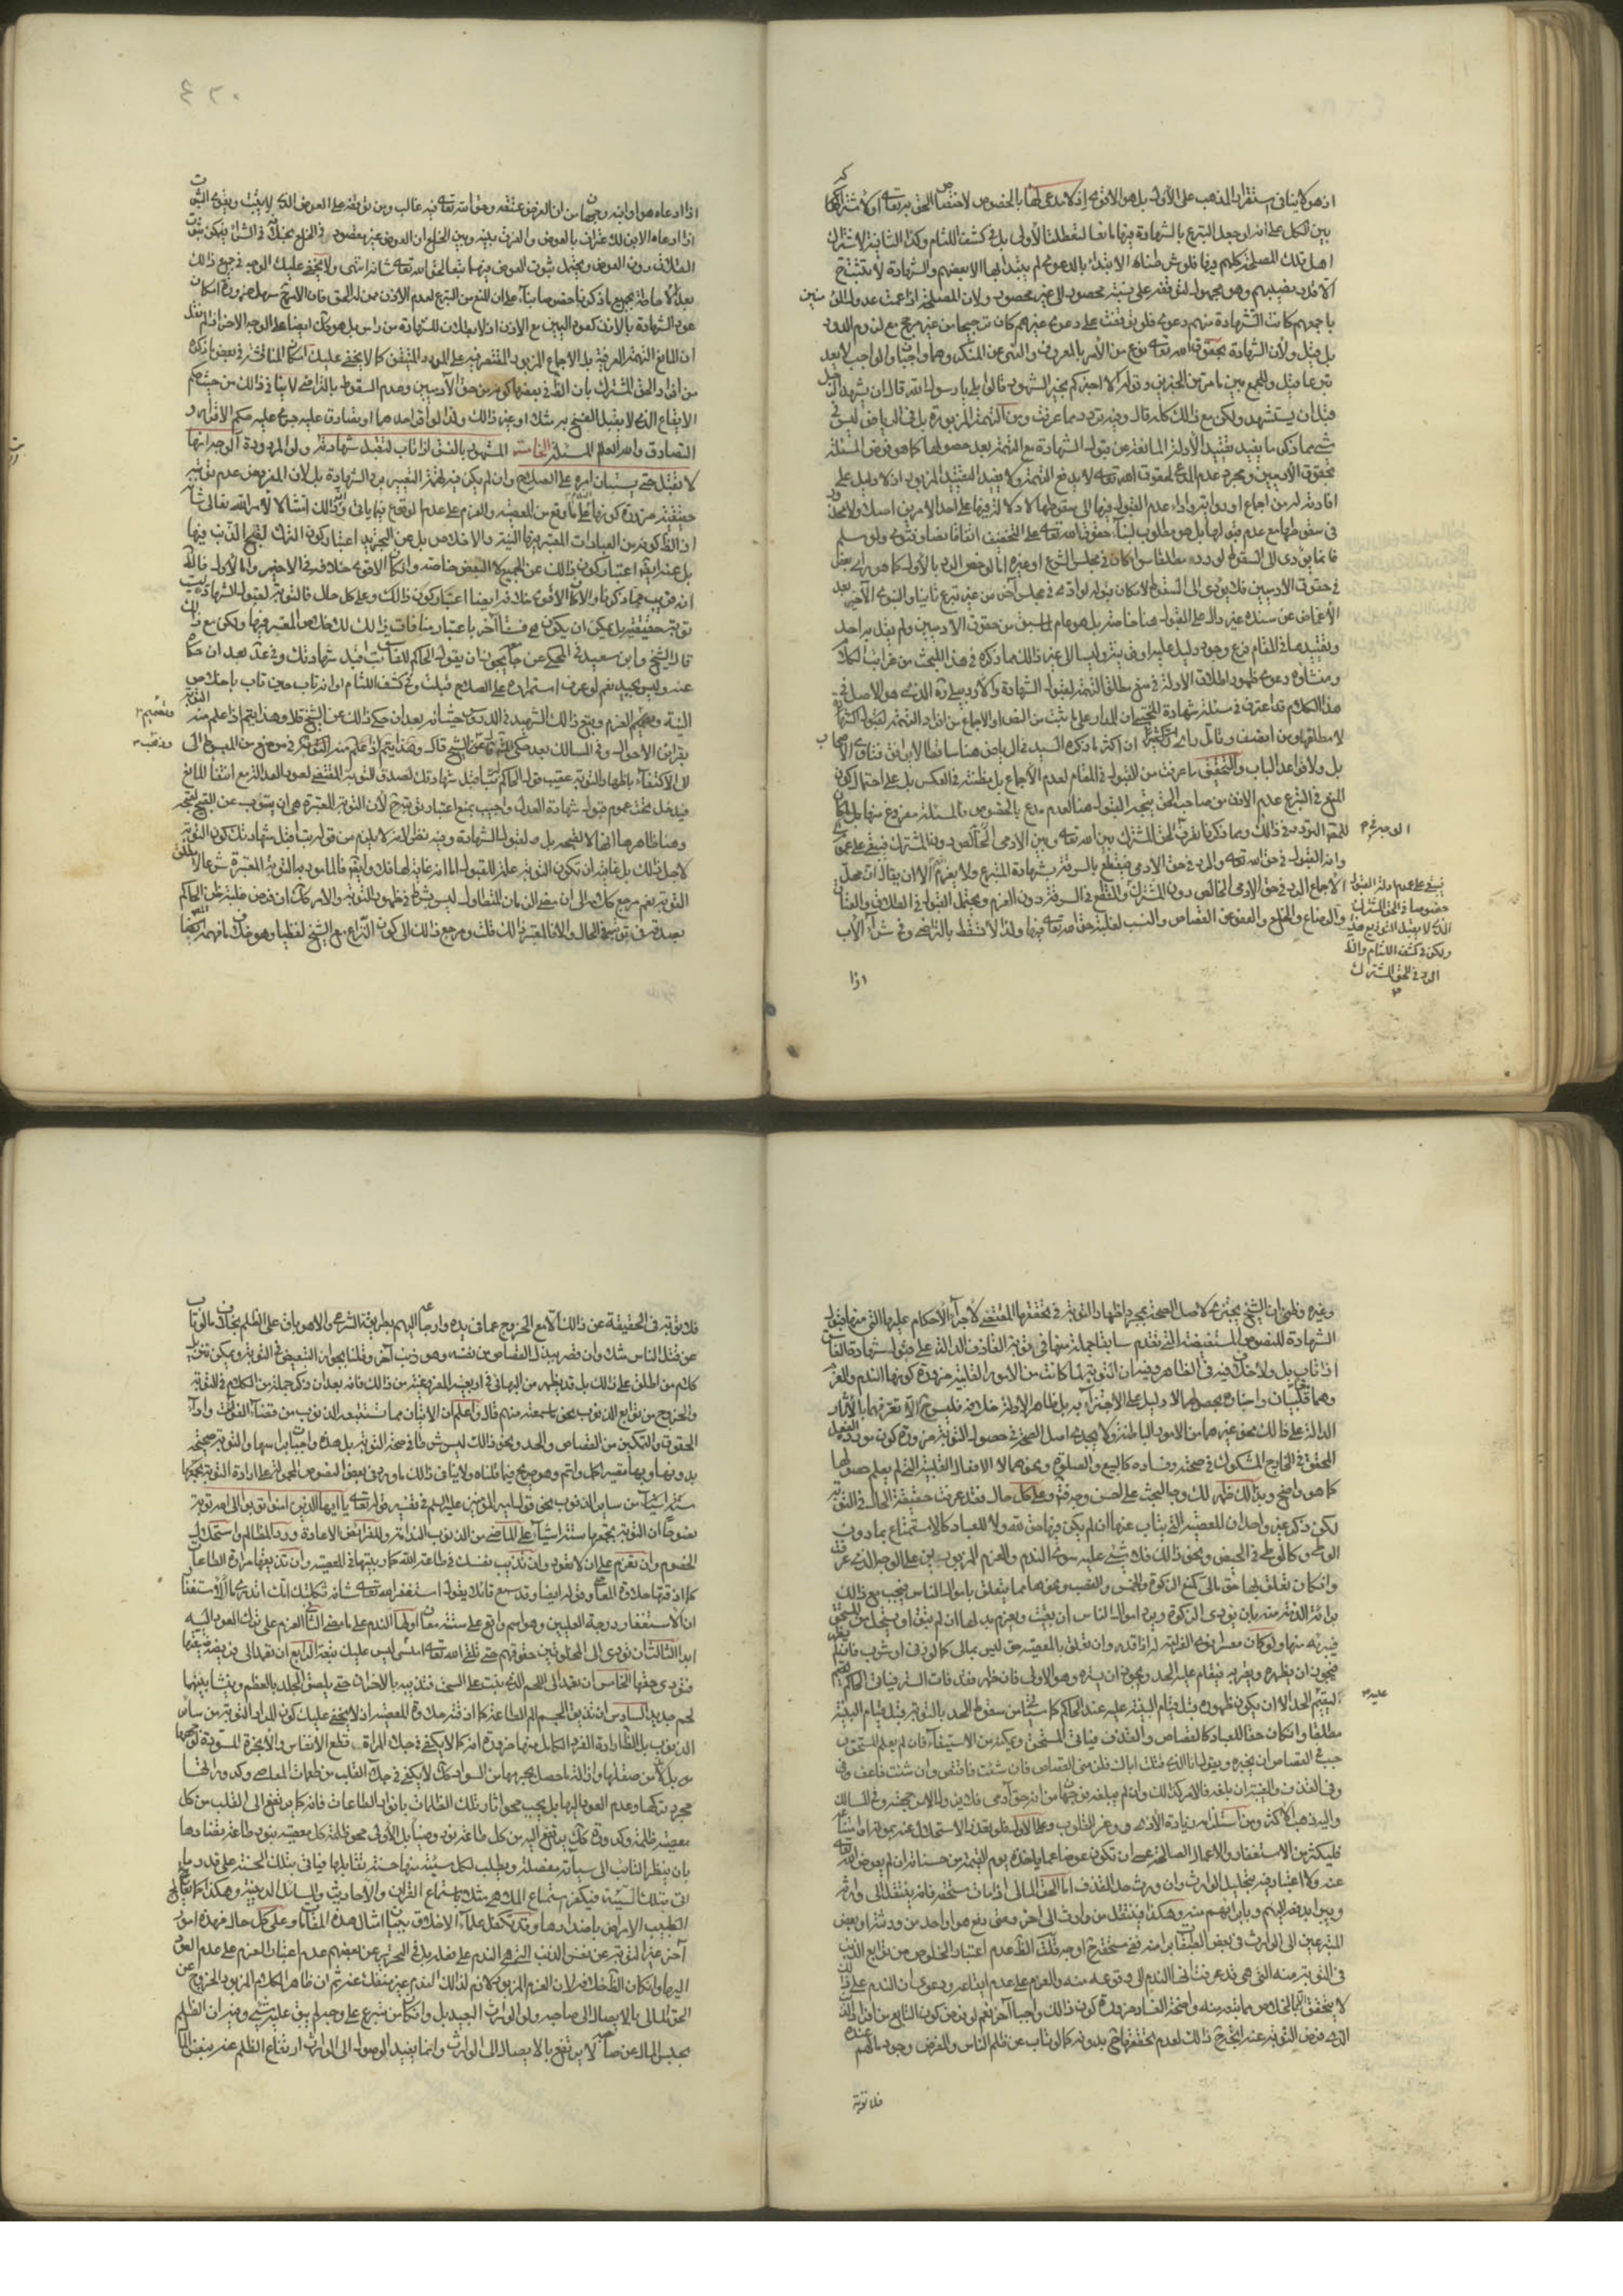 اذ هو لا ينافي استقرار المذهب على الأول بل هو الاقوى اذ لا مدعى لها بالخصوص لاختصاص الحق به تعالى او لاشتراكها
بين الكل على انه لو جعل التبرع بالشهادة فيها مانعا لتعطلت الأولى بل في كشف اللثام وكذا الثانية لاشتراك
اهل تلك المصلحة كلهم فيها فلو شرطنا الابتداء بالدعوى لم يبتدأ بها الا بعضهم والشهادة لا تثبت ح
الا قدر نصيبهم وهو مجهول لتوقفه على نسبة محصور الى غير محصور ولان المصلحة اذا عمت عدول المؤمنين
باجمعهم كانت الشهادة منهم دعوى فلو توقفت على دعوى غيرهم كان ترجيحا من غير مرجح مع لزوم الدور
بل قيل ولأن الشهادة بحقوق الله تعالى نوع من الأمر بالمعروف والنهي عن المنكر وهما واجبان والواجب لا يعد
تبرعا قيل وللجمع بين ما مر من الخبرين وقوله الا اخبركم بخير الشهود قالوا بلى يا رسول الله قال ان يشهد الرجل
قبل ان يستشهد ولكن مع ذلك كله قال وفيه تردد مما عرفت ومن التهمة المزبورة بل في الرياض ليس في
شيء مما ذكر ما يفيد تقييد الأدلة المانعة عن قبول الشهادة مع التهمة بعد حصولها كما هو فرض المسئلة
بحقوق الآدميين ومجرد عدم المدعي لحقوق الله تعالى لا يدفع التهمة ولا يفيد التقييد المزبور اذ لا دليل على
افادته له من اجماع او رواية واداء عدم القبول فيها الى سقوطها لا دلالة فيها على احد الامرين اصلا ولا محذور
في سقوطها مع عدم قبولها بل هو مطلوب لبناء حقوق الله تعالى على التخفيف اتفاقا نصا وفتوى ولو سلم
فانما يؤدي الى السقوط لو رده مطلقا سواء كان في مجلس التبرع او غيره اما لو خص الرد بالأول كما هو رأي بعض
في حقوق الآدميين فلا يؤدي الى السقوط لامكان قبوله لو ادى في مجلس آخر من غير تبرع ثانيا والنبوي الأخير بعد
الاغماض عن سنده غير دال على القبول هنا خاصة بل هو عام لما سبق من حقوق الآدميين ولم يقل به احد
وتقييده بما في المقام فرع وجود دليل عليه
هذا الكلام قد اعترف في مسئلة شهادة
بل ولا قواعد الباب والتحقيق ما عرفت من القبول في المقام لعدم الاجماع بل مظنته في العكس بل على احتمال كون
المنع في التبرع عدم الاذن من صاحب الحق يتجه القبول هنا لعدم مدع بالخصوص فالمسئلة مفروغ منها بل لا مكان
الوجه في
للمحقق التردد في ذلك ومما ذكرنا يعرف الحق المشترك بين الله تعالى وبين الآدمي
وانه القبول في حق الله تعالى والرد في حق الآدمي فيقطع بالسرقة بشهادة المتبرع ولا يغرم الا ان يقال ان محل
الاجماع الرد في حق الآدمي الخالص دون المشترك والقطع في السرقة دون الغرم ويحتمل القبول في الطلاق والعتاق
والرضاع والخلع والعفو عن القصاص والنسب لغلبة حق الله تعالى فيها ولذا لا تسقط بالتراضي وفي شراء الأب
فيبقى على عموم ادلة القبول
خصوصا في الحق المشترك
الذي لا يقبل التوزيع
ولكن في كشف اللثام والاقوى
الرد في الحق المشترك
اذا
٤٢٠
اذا ادعاه هو او ابنه وجهان من ان الغرض عتقه وحق الله تعالى فيه غالب ومن توقفه على العوض الذي لا يثبت ويقوى الثبوت
اذا ادعاه الابن لاعترافه بالعوض والفرق بينه وبين الخلع ان العوض غير مقصود في الخلع بخلافه في الشراء فيمكن ثبوت
الطلاق دون العوض ويحتمل ثبوت العوض فيهما تبعا لحق الله تعالى شأنه انتهى ولا يخفى عليك الوجه في جميع ذلك
بعد الاحاطة بجميع ما ذكرنا خصوصا بناء على ان المنع من التبرع لعدم الاذن ممن له الحق فان الامر ح سهل ضرورة امكان
عود الشهادة بالاذن كعود اليمين مع الاذن اذ لا بطلان للشهادة من رأس بل هو كذلك ايضا على الوجه الآخر اذا لم نقل
ان المانع التهمة العرفية بل الاجماع المزبور المقتصر فيه على المورد المتيقن كما لا يخفى عليك امكان المناقشة في بعض ما ذكره
من افراد الحق المشترك بان الظ في بعضها كونه من حق الآدميين وعدم السقوط بالتراضي لا ينافي ذلك من حيث حكم
الايقاع الذي لا يقبل الفسخ
التصادق والله العالم المسئلة الخامسة المشهور بالفسق اذا تاب لتقبل شهادته ولو المردودة الوجه انها
لا تقبل حتى يستبان امره على الصلاح وان لم يكن فيه تهمة التغيير من الشهادة بل لان المفروض عدم توبته
حقيقة ضرورة كونها الندم على ما وقع من المعصية والعزم على عدم الوقوع فيما يأتي وذلك امتثالا لأمر الله تعالى شأنه
اذ الظ كونه من العبادات المعتبر فيها النية والاخلاص بل عن التجريد اعتبار كون الترك لقبح الذنب فيها
بل عنه ايضا اعتبار كون ذلك عن الجميع لا البعض خاصة وان كان الاقوى خلافه في الاخير واما الأول فالظ
انه قريب مما ذكرنا وان كان الاقوى خلافه ايضا اعتبار كون ذلك وعلى كل حال فالتوبة لقبول الشهادة ليست
توبة حقيقة بل يمكن ان يكون هي فسقا آخر باعتبار منافاة ذلك للاخلاص المعتبر فيها ولكن مع ذلك
قال الشيخ وابن سعيد في المحكي عن جامعه يجوز ان يقول الحاكم للفاسق تب اقبل شهادتك وفي عد بعد ان حكاه
عنه وليس بجيد نعم لو عرف استمراره على الصلاح قبلت وفي كشف اللثام او انه تاب حين تاب باخلاص
النية وتصميم العزم وتبع ذلك الشهيد في الدروس حيث انه بعد ان حكى ذلك عن الشيخ قال وهذا يتم اذا علم منه التوبة
بقرائن الاحوال وفي المسالك
الى الاكتفاء باظهار التوبة عقيب قول الحاكم تب اقبل شهادتك لصدق التوبة المقتضي لعود العدالة مع انتفاء المانع
فيدخل تحت عموم قبول شهادة العدل واجيب بمنع اعتبار توبته ح لأن التوبة المعتبرة هي ان يتوب عن القبيح لقبحه
وهنا ظاهرها انها لا لقبحه بل لقبول الشهادة وفيه نظر لانه لا يلزم من قوله تب اقبل شهادتك كون التوبة
لاجل ذلك بل غايته ان تكون التوبة علة للقبول اما انه غاية لها فلا وايضا فالمأمور به التوبة المعتبرة شرعا لا مطلق
التوبة نعم مرجع كلامه الى ان مضي الزمان المتطاول ليس شرطا في ظهور التوبة والامر كذلك ان فرض غلبة ظن الحاكم
بصدقه في توبته في الحال والا فالمعتبر ذلك قلت ومرجع ذلك الى كون النزاع مع الشيخ لفظيا وهو خلاف ما فهمه المصنف
وغيره وظني ان الشيخ يجتزئ لاصل الصحة بمجرد اظهار التوبة في تحققها المقتضي لاجراء الأحكام عليها التي منها قبول
الشهادة للنصوص المستفيضة التي تقدم سابقا جملة منها في توبة القاذف الدالة على قبول شهادة الفاسق
اذا تاب بل ولا خلاف فيه في الظاهر وفيه ان التوبة لما كانت من الأمور القلبية ضرورة كونها الندم والعزم
وهما قلبيان
الدالة على ذلك نحو غيرهما من الأمور الباطنة ولا يجدي اصل الصحة في حصول التوبة ضرورة كون مورده الفعل
المحقق في الخارج المشكوك في صحته وفساده كالبيع والصلوة ونحوهما لا الافعال القلبية التي لم يعلم حصولها
كما هو واضح وبذلك ظهر لك وجه البحث على احسن وجه وعلى كل حال فقد عرفت حقيقة الحال في التوبة
لكن ذكر غير واحد ان المعصية التي يتاب عنها ان لم يكن فيها حق لله ولا للعباد كالاستمتاع بما دون
الوطي وكالوطي في الحيض ونحو ذلك فلا شيء عليه سوى الندم والعزم المزبورين على الوجه الذي عرفت
وان كان تعلق بها حق مالي كمنع الزكوة والخمس والغصب ونحوها مما يتعلق باموال الناس فيجب مع ذلك
براءة الذمة منه بان يؤدي الزكوة ويرد اموال الناس ان بقيت ويغرم بدلها ان لم يبق او يستحل من المستحق
فيبرئه منها ولو كان معسرا نوى الغرامة له اذا قدر وان تعلق بالمعصية حق ليس بمالي كما لو زنى او شرب فان لم يظهر
فيجوز ان يظهره ويقر به فيقام عليه الحد ويجوز ان يستره وهو الاولى فان ظهر فقد فات الستر فيأتي الحاكم ليقيم
عليه
الحد الا ان يكون ظهوره قبل قيام البينة عليه عند الحاكم لما سيأتي من سقوط الحد بالتوبة قبل قيام البينة
مطلقا وان كان حقا للعباد كالقصاص والقذف فيأتي المستحق ويمكنه من الاستيفاء فان لم يعلم المستحق
وجب في القصاص ان يخبره ويقول انا الذي قتلت اباك فلزمني القصاص فان شئت فاقتص وان شئت فاعف
وفي القذف والغيبة ان بلغه فالامر كذلك وان لم يبلغه فوجهان من انه حق آدمي فلا يزول الا من جهته وفي المسالك
واليه ذهب الاكثر ومن استلزامه زيادة الأذى ووغر القلوب وعلى الأول فلو تعذر الاستحلال منه بموته او امتناعه
فليكثر من الاستغفار والأعمال الصالحة عسى ان تكون عوضا عما يأخذه يوم القيمة من حسناته ان لم يعوضه الله تعالى
عنه ولا اعتبار فيه بتحليل الورثة وان ورث حد القذف اما الحق المالي اذا مات مستحقه فانه ينتقل الى وارثه
ويبرأ بدفعه اليهم وبابرائهم منه وهكذا ينتقل من وارث الى آخر ومتى دفع هو او احد من ورثته او بعض
المتبرعين الى الوارث في بعض الطبقات برء منه ففي مستحقه ح اوجه قلت الظ عدم اعتبار الخلوص من توابع الذنب
في التوبة منه التي هي قد عرفت انها الندم الى وقوعه منه والعزم على عدم ايقاعه ودعوى ان الندم على ذلك
لا يتحقق الا بالخلاص مما يتبعه منه واضحة الفساد ضرورة كون ذلك واجبا آخر نعم لو فرض كون التابع من افراد الذنب
الذي فرض التوبة عنه اتجه ح ذلك لعدم تحققها ح بدونه كما لو تاب عن ظلم الناس والفرض وجود مالهم عنده
فلا توبة
فلا توبة في الحقيقة عن ذلك الا مع الخروج عما في يده وارجاعه اليهم بطريقه الشرعي والا هو باق على الظلم بخلاف ما لو تاب
عن قتل الناس مثلا وان قصر ببذل القصاص من نفسه وهو ذنب آخر وقلنا بجواز التبعيض في التوبة ويمكن تنزيل
كلام من اطلق على ذلك بل قد يظهر من البهائي في اربعينه المفروغية من ذلك فانه بعد ان ذكر جملة من الكلام في التوبة
والخروج من توابع الذنوب نحو ما سمعته منهم قال واعلم ان الاتيان بما تستتبعه الذنوب من قضاء الفوائت واداء
الحقوق والتمكين من القصاص والحد ونحو ذلك ليس شرطا في صحة التوبة بل هذه واجبات برأسها والتوبة صحيحة
بدونها وبها تصير اكمل واتم وهو صريح فيما قلناه ولا ينافي ذلك ما ورد في بعض النصوص المحمولة على ارادة التوبة بجميعها
ستة اشياء من سائر الذنوب نحو قول امير المؤمنين عليه السلام في تفسير قوله تعالى يا ايها الذين امنوا توبوا الى الله توبة
نصوحا ان التوبة يجمعها ستة اشياء على الماضي من الذنوب الندامة وللفرائض الاعادة ورد المظالم واستحلال
الخصوم وان تعزم على ان لا تعود وان تذيب نفسك في طاعة الله كما ربيتها في المعصية وان تذيقها مرارة الطاعات
كما اذقتها حلاوة المعاصي وقوله ايضا وقد سمع قائلا يقول استغفر الله تعالى شأنه ثكلتك امك اتدري ما الاستغفار
ان الاستغفار درجة العليين وهو اسم واقع على ستة معان اولها الندم على ما مضى الثاني العزم على ترك العود اليه
ابدا الثالث ان تؤدي الى المخلوقين حقوقهم حتى تلقى الله تعالى املس ليس عليك تبعة الرابع ان تعمد الى كل فريضة ضيعتها
فتؤدي حقها الخامس ان تعمد الى اللحم الذي نبت على السحت فتذيبه بالاحزان حتى يلصق الجلد بالعظم وينشأ بينهما
لحم جديد السادس ان تذيق الجسم الم الطاعة كما اذقته حلاوة المعصية اذ لا يخفى عليك كون المراد التوبة من سائر
الذنوب بل الظ ارادة الفرد الكامل منها ضرورة انه كما لا يكفي في جلاء المرآة قطع الانفاس والأبخرة المسودة لوجهها
بل لابد من صقلها وازالة ما حصل بجرمها من السواد كذلك لا يكفي في جلاء القلب من ظلمات المعاصي وكدوراتها
مجرد تركها وعدم العود اليها بل يجب محو آثار تلك الظلمات بانوار الطاعات فانه كما يرتفع الى القلب من كل
معصية ظلمة وكدورة كذلك يرتفع اليه من كل طاعة نور وضياء بل الأولى محو ظلمة كل معصية بنور طاعة تضادها
بان ينظر التائب الى سيئاته مفصلة ويطلب لكل سيئة منها حسنة تقابلها فيأتي بتلك الحسنة على قدر ما
اتى بتلك السيئة فيكفر استماع الملاهي مثلا باستماع القرآن والأحاديث والمسائل الدينية وهكذا كما يعالج
الطبيب الامراض باضدادها وقد تكفل علماء الاخلاق ببيان امثال هذه المقامات وعلى كل حال فهذه امور
آخر غير التوبة من نفس الذنب التي هي الندم على فعله بل في التحرير عن بعضهم عدم اعتبار العزم على عدم العود
اليه وان كان الظ خلافه لان العزم المزبور لازم لذلك الندم غير منفك عنه ثم ان ظاهر الكلام المزبور الخروج عن
الحق المالي بالايصال الى صاحبه ولو الى وارث البعيد بل وان كان بتبرع على وجه لم يبق عليه شيء وفيه ان الظلم
بحبس المال عن صاحبه لا يرتفع بالايصال الى الوارث وانما يفيد الوصول الى الوارث ارتفاع الظلم عنه